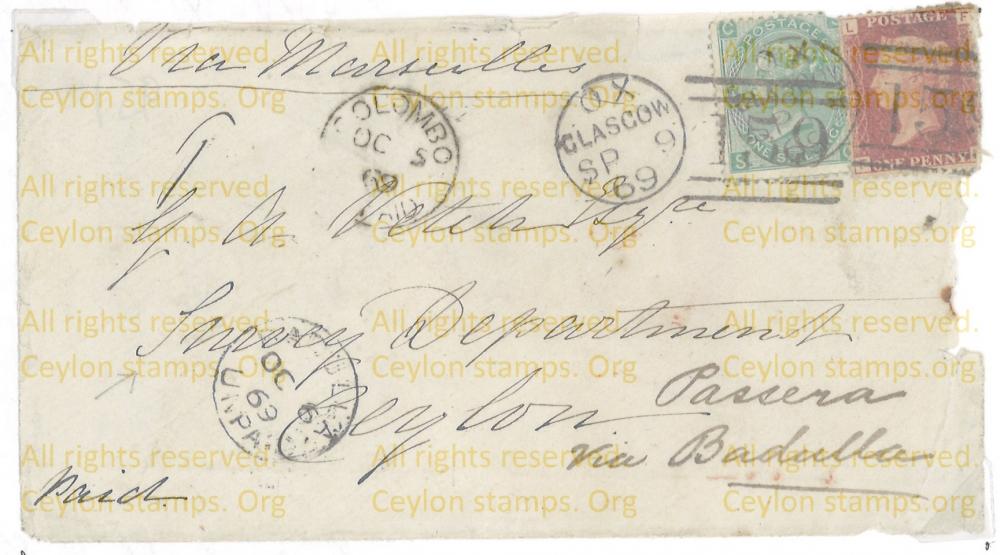 Via Marseilles
POSTAGE
ONE SHILLING
159
L F
POSTAGE
ONE PENNY
COLOMBO
OC 5
69
PAID
X
GLASGOW
SP 9
69
Esqre
Survey Department
Ceylon
OC 6
69
UNPAID
Passera
via Badulla
Paid
All rights reserved.
Ceylon stamps. Org
All rights reserved.
Ceylon stamps. Org
All rights reserved.
Ceylon stamps. Org
All rights reserved.
Ceylon stamps. Org
All rights reserved.
Ceylon stamps. Org
All rights reserved.
Ceylon stamps. Org
All rights reserved.
Ceylon stamps. Org
All rights reserved.
Ceylon stamps. Org
All rights reserved.
Ceylon stamps. Org
All rights reserved.
Ceylon stamps. Org
All rights reserved.
Ceylon stamps. Org
All rights reserved.
Ceylon stamps. Org